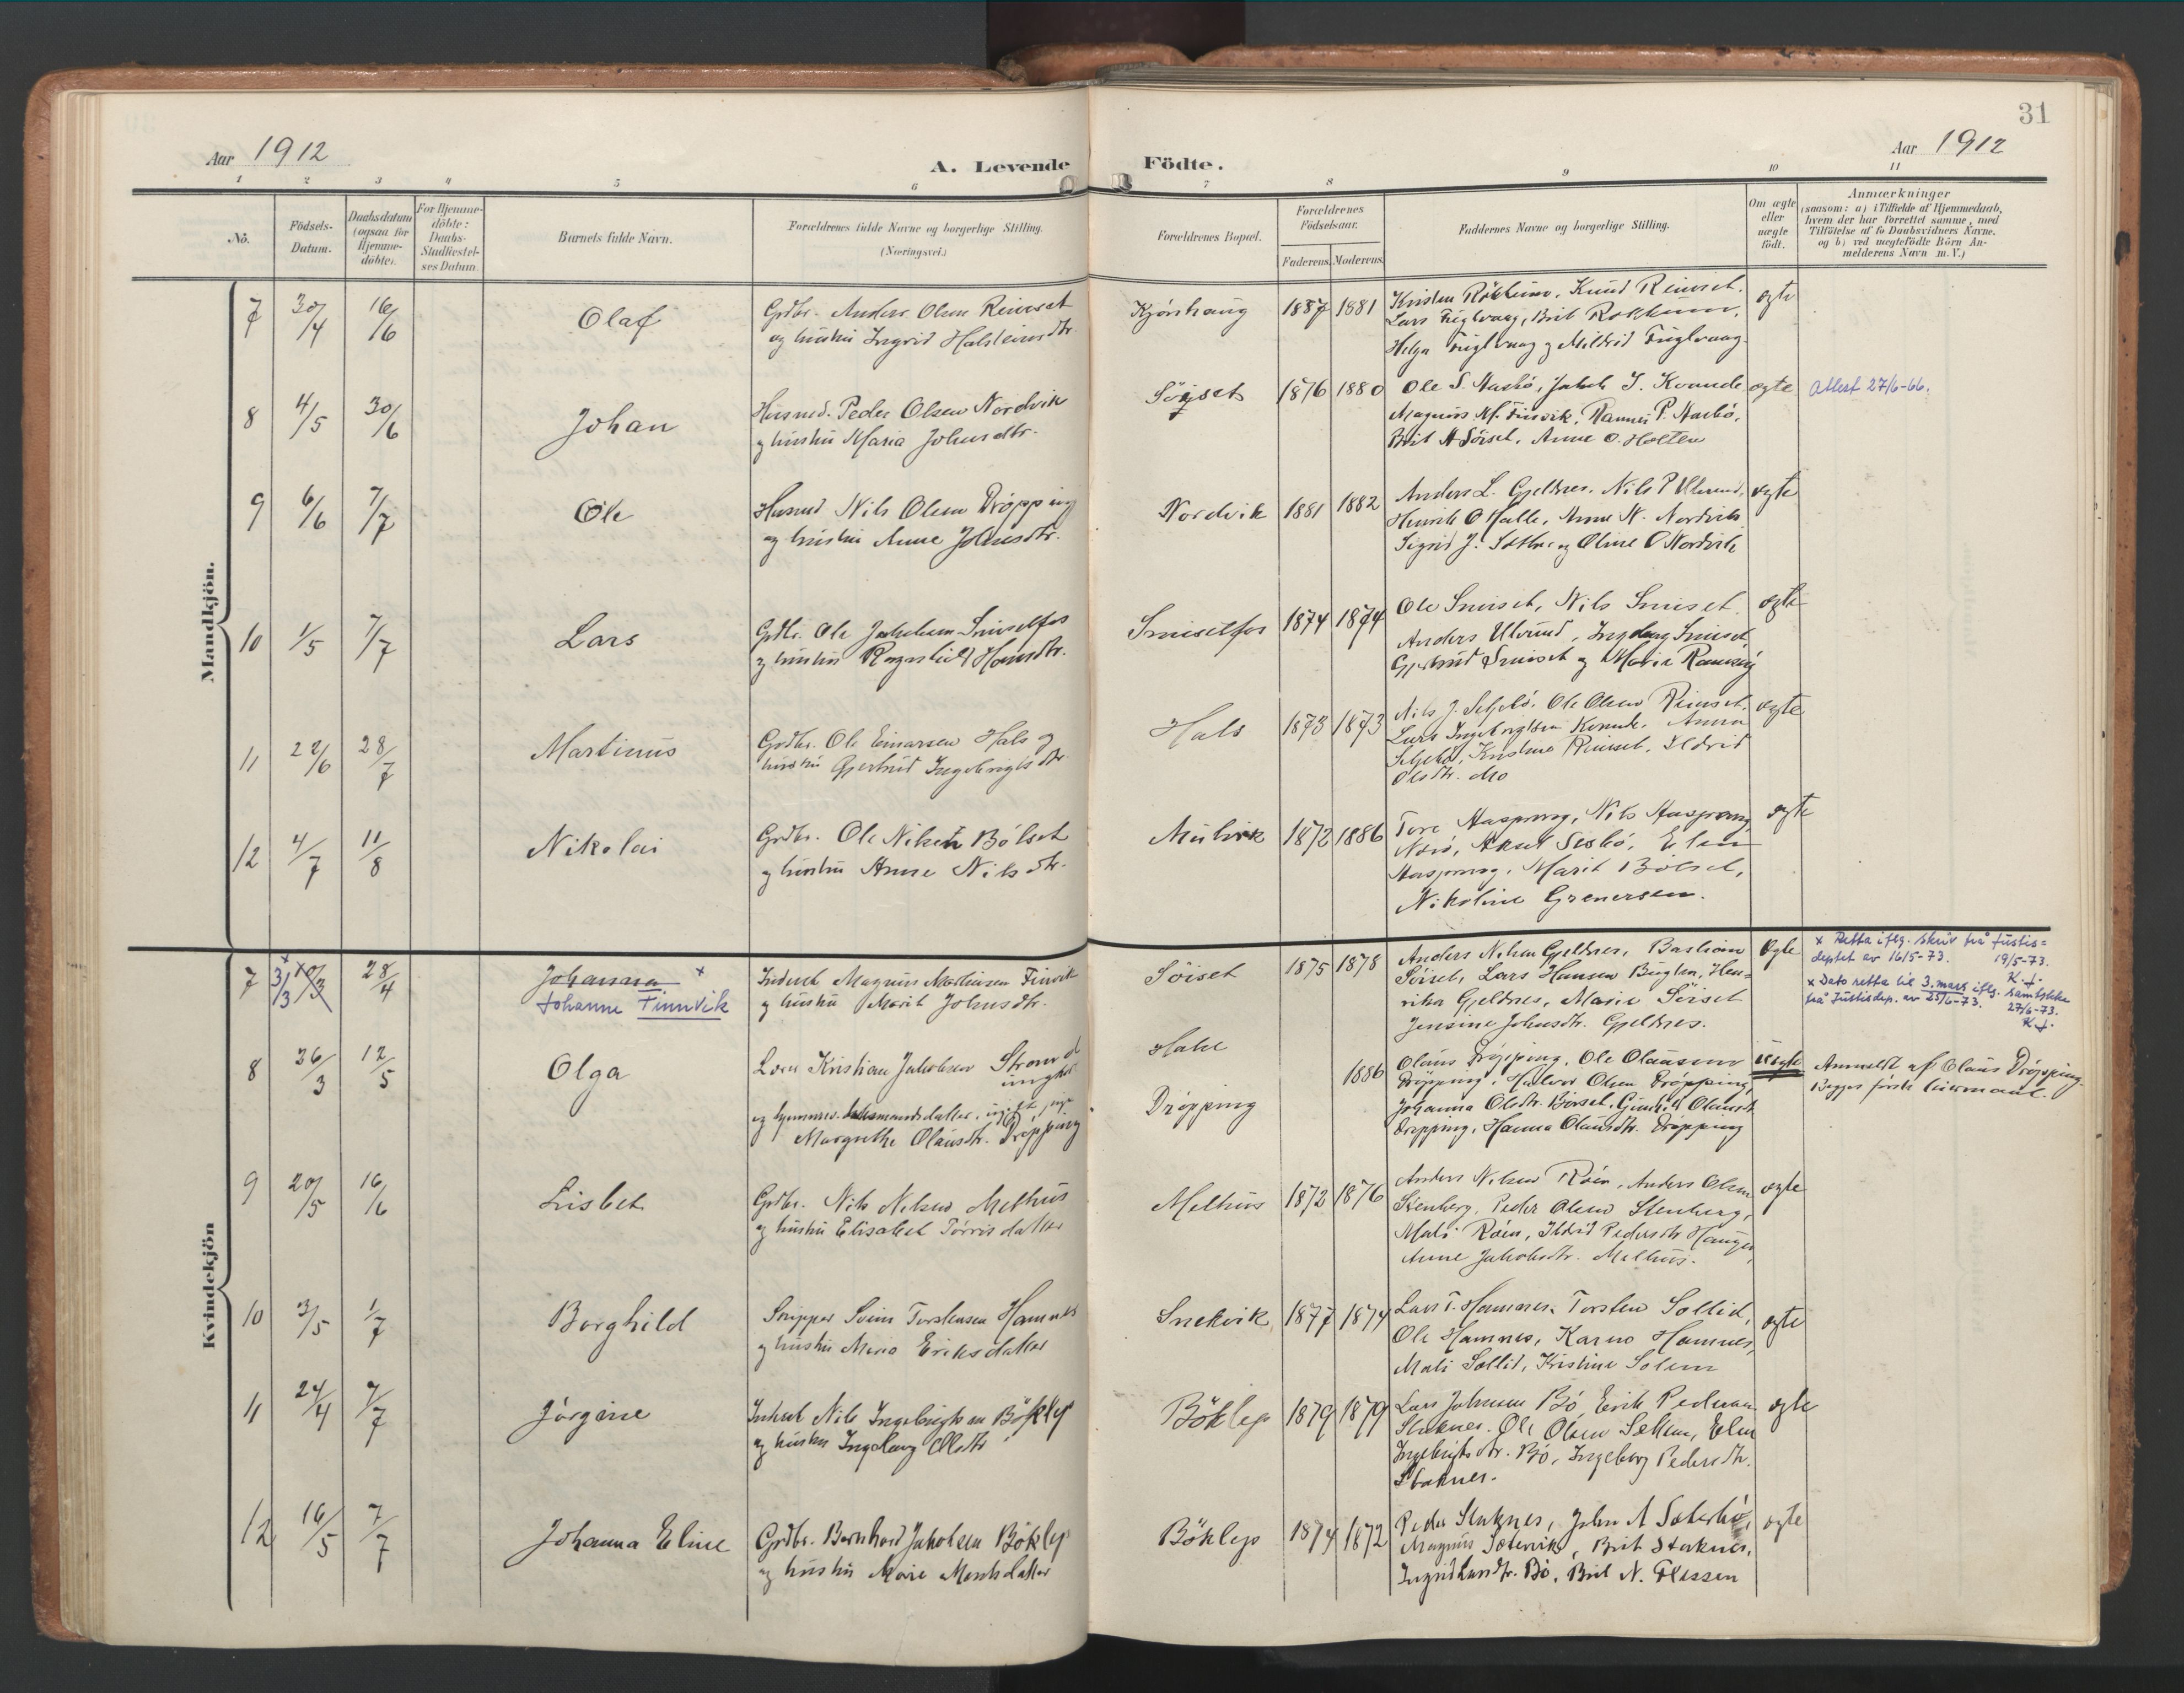 31
Aar 1912
A. Levende Födte.
Aar 1912
1 2 3 4 5 6 7 8 9 10 11
No.
Födsels-
Datum.
Daabsdatum
(ogsaa for
Hjemme-
döbte).
For Hjemme-
döbte:
Daabs-
Stadfæstel-
ses Datum.
Barnets fulde Navn.
Forældrenes fulde Navne og borgerlige Stilling.
(Næringsvei.)
Forældrenes Bopæl.
Forældrenes
Födselsaar.
Faderens. Moderens.
Faddernes Navne og borgerlige Stilling.
Om ægte
eller
uægte
födt.
Anmærkninger
(saasom: a) i Tilfælde af Hjemmedaab,
hvem der har forrettet samme, med
Tilföielse af to Daabsvidners Navne.
og b) ved uægtefödte Börn An-
melderens Navn m. V.)
Mandkjön.
7 30/4 16/6 Olaf
Grdbr. Anders Olsen Reinset
og hustru Ingrid Halsteinsdtr.
Kjønhaug 1887 1881
Kristen Rökkum, Knud Reinset.
Lars Fuglvaag, Brit Rokkum,
Helga Fuglvaag og Mildrid Fuglvaag.
ægte
8 4/5 30/6 Johan
Husmd. Peder Olsen Nordvik
og hustru Maria Johnsdtr.
Söiset 1876 1880
Ole S. Aasbö, Jakob J. Kvande
Magnus M. Finvik, Rannei P. Aasbö,
Brit A Söiset, Anne O. Holten
ægte
Attest 27/6-66.
9 6/6 7/7 Ole
Husmd Nils Olsen Dröpping
og hustru Anne Johnsdtr.
Nordvik 1881 1882
Anders L. Gjeldnes, Nils P Ulvund,
Henrik O Halle, Anne N. Nordvik
Sigrid J. Sæther og Oline O Nordvik
ægte
10 1/5 7/7 Lars
Grdbr. Ole Jakobsen Snuisetfos
og hustru Ragnhild Hansdtr.
Snuisetfos 1874 1874
Ole Snuiset, Nils Snuiset
Anders Ulvund, Ingeborg Snuiset
Gjertrud Snuiset og Maria Ramsöy
ægte
11 22/6 28/7 Martinus
Grdbr. Ole Einarsen Hals og
hustru Gjertrud Ingebrigtsdtr.
Hals 1873 1873
Nils J. Settebö, Ole Olsen Reinset,
Lars Ingebrigtsen Kvande, Anna
Settebö, Kristine Reinset, Ildrid
Olsdtr. Mo
ægte
12 4/7 11/8 Nikolai
Grdbr. Ole Nilsen Bölset
og hustru Anne Nilsdtr.
Mulvik 1872 1886
Tore Aasprang, Nils Aasprang
Aksel Sesbö, Elen
Aasprang, Marit Bölset,
Nikoline Grenersen.
ægte
Kvindekjön
7 3/3 10/3 28/4 Johanna x
Johanne Finnvik
Inderst Magnus Mathiasen Finvik
og hustru Marit Johnsdtr.
Söiset 1875 1878
Anders Nilsen Gjeldnes, Bastian
Söiset, Lars Hansen Hen-
rika Gjeldnes, Marie Söiset
Jensine Johnsdtr. Gjeldnes.
ægte
x Retta iflg. skriv frå Justis-
deptet av 16/5-73. 19/5-73.
K.J.
x Dato retta til 3. mars iflg. samtykke
frå Justisdep. av 25/6-73. 27/6-73.
K.J.
8 26/3 12/5 Olga
Kristian Jakobsen Strand
ungkar
og husmandsdatter, ugift pige
Margrethe Olausdtr. Dröpping
Halse
Dröpping 1886
Olaus Dröpping, Ole Olausen
Dröpping, Halvor Olsen Dröpping,
Johanna Olsdtr. Börset, Gunhild Olausdtr
Dröpping, Hanna Olausdtr. Dröpping
uægte
Anmeldt af Olaus Dröpping.
Begges förste leiermaal.
9 20/5 16/6 Lisbet
Grdbr. Nils Nilsen Melhus
og hustru Elisabet Torrisdatter
Melhus 1872 1876
Anders Nilsen Röen, Anders Olsen
Stenberg, Peder Olsen Stenberg,
Mali Röen, Ildrid Pedersdtr Haugen,
Anne Jakobsdtr. Melhus.
ægte
10 3/5 1/7 Borghild
Skipper Svein Torstensen Hamnes
og hustru Maria Eriksdatter
Snekvik 1877 1874
Lars T. Hamnes, Torsten Sollid,
Ole Hamnes, Karen Hamnes,
Mali Sollid, Kristine Solem
ægte
11 24/4 7/7 Jörgine
Inderst Nils Ingebrigtsen Böklep
og hustru Ingeborg Olsdtr
Böklep 1879 1879
Lars Johnsen Bö, Erik Pedersen
Stoknes, Ole Olsen Settem, Elen
Ingebrigtsdtr. Bö, Ingeborg Pedersdtr.
Stoknes.
ægte
12 16/5 7/7 Johanna Eline
Grdbr. Bernhard Jakobsen Böklep
og hustru Marie Montsdatter
Böklep 1874 1872
Peder Stoknes, John A Sæterbö,
Magnus Sætervik, Brit Stoknes,
Ingrid Larsdtr. Bö, Brit N. Flessen
ægte